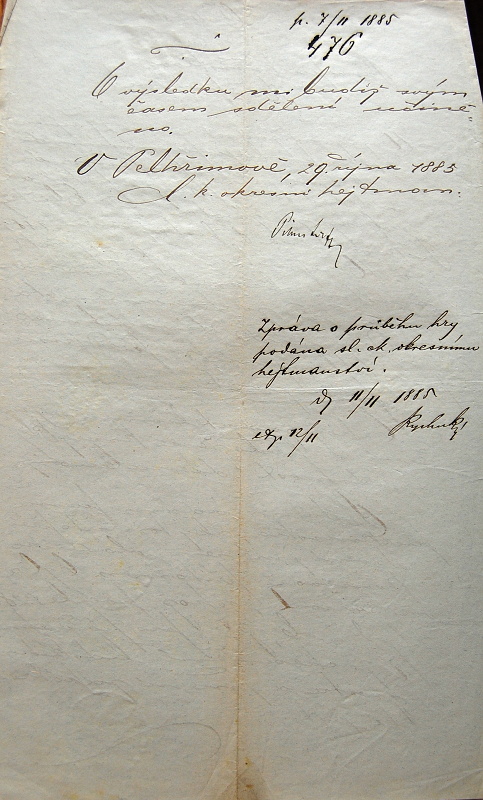 p. 7/11 1885
476
O výsledku mi budiž svým
časem sdělení učině-
no.
V Pelhřimově, 29. října 1885
C. k. okresní hejtman:
Zpráva o průběhu hry
podána sl. ck. okresnímu
hejtmanství.
11/11 1885
exp. 12/11